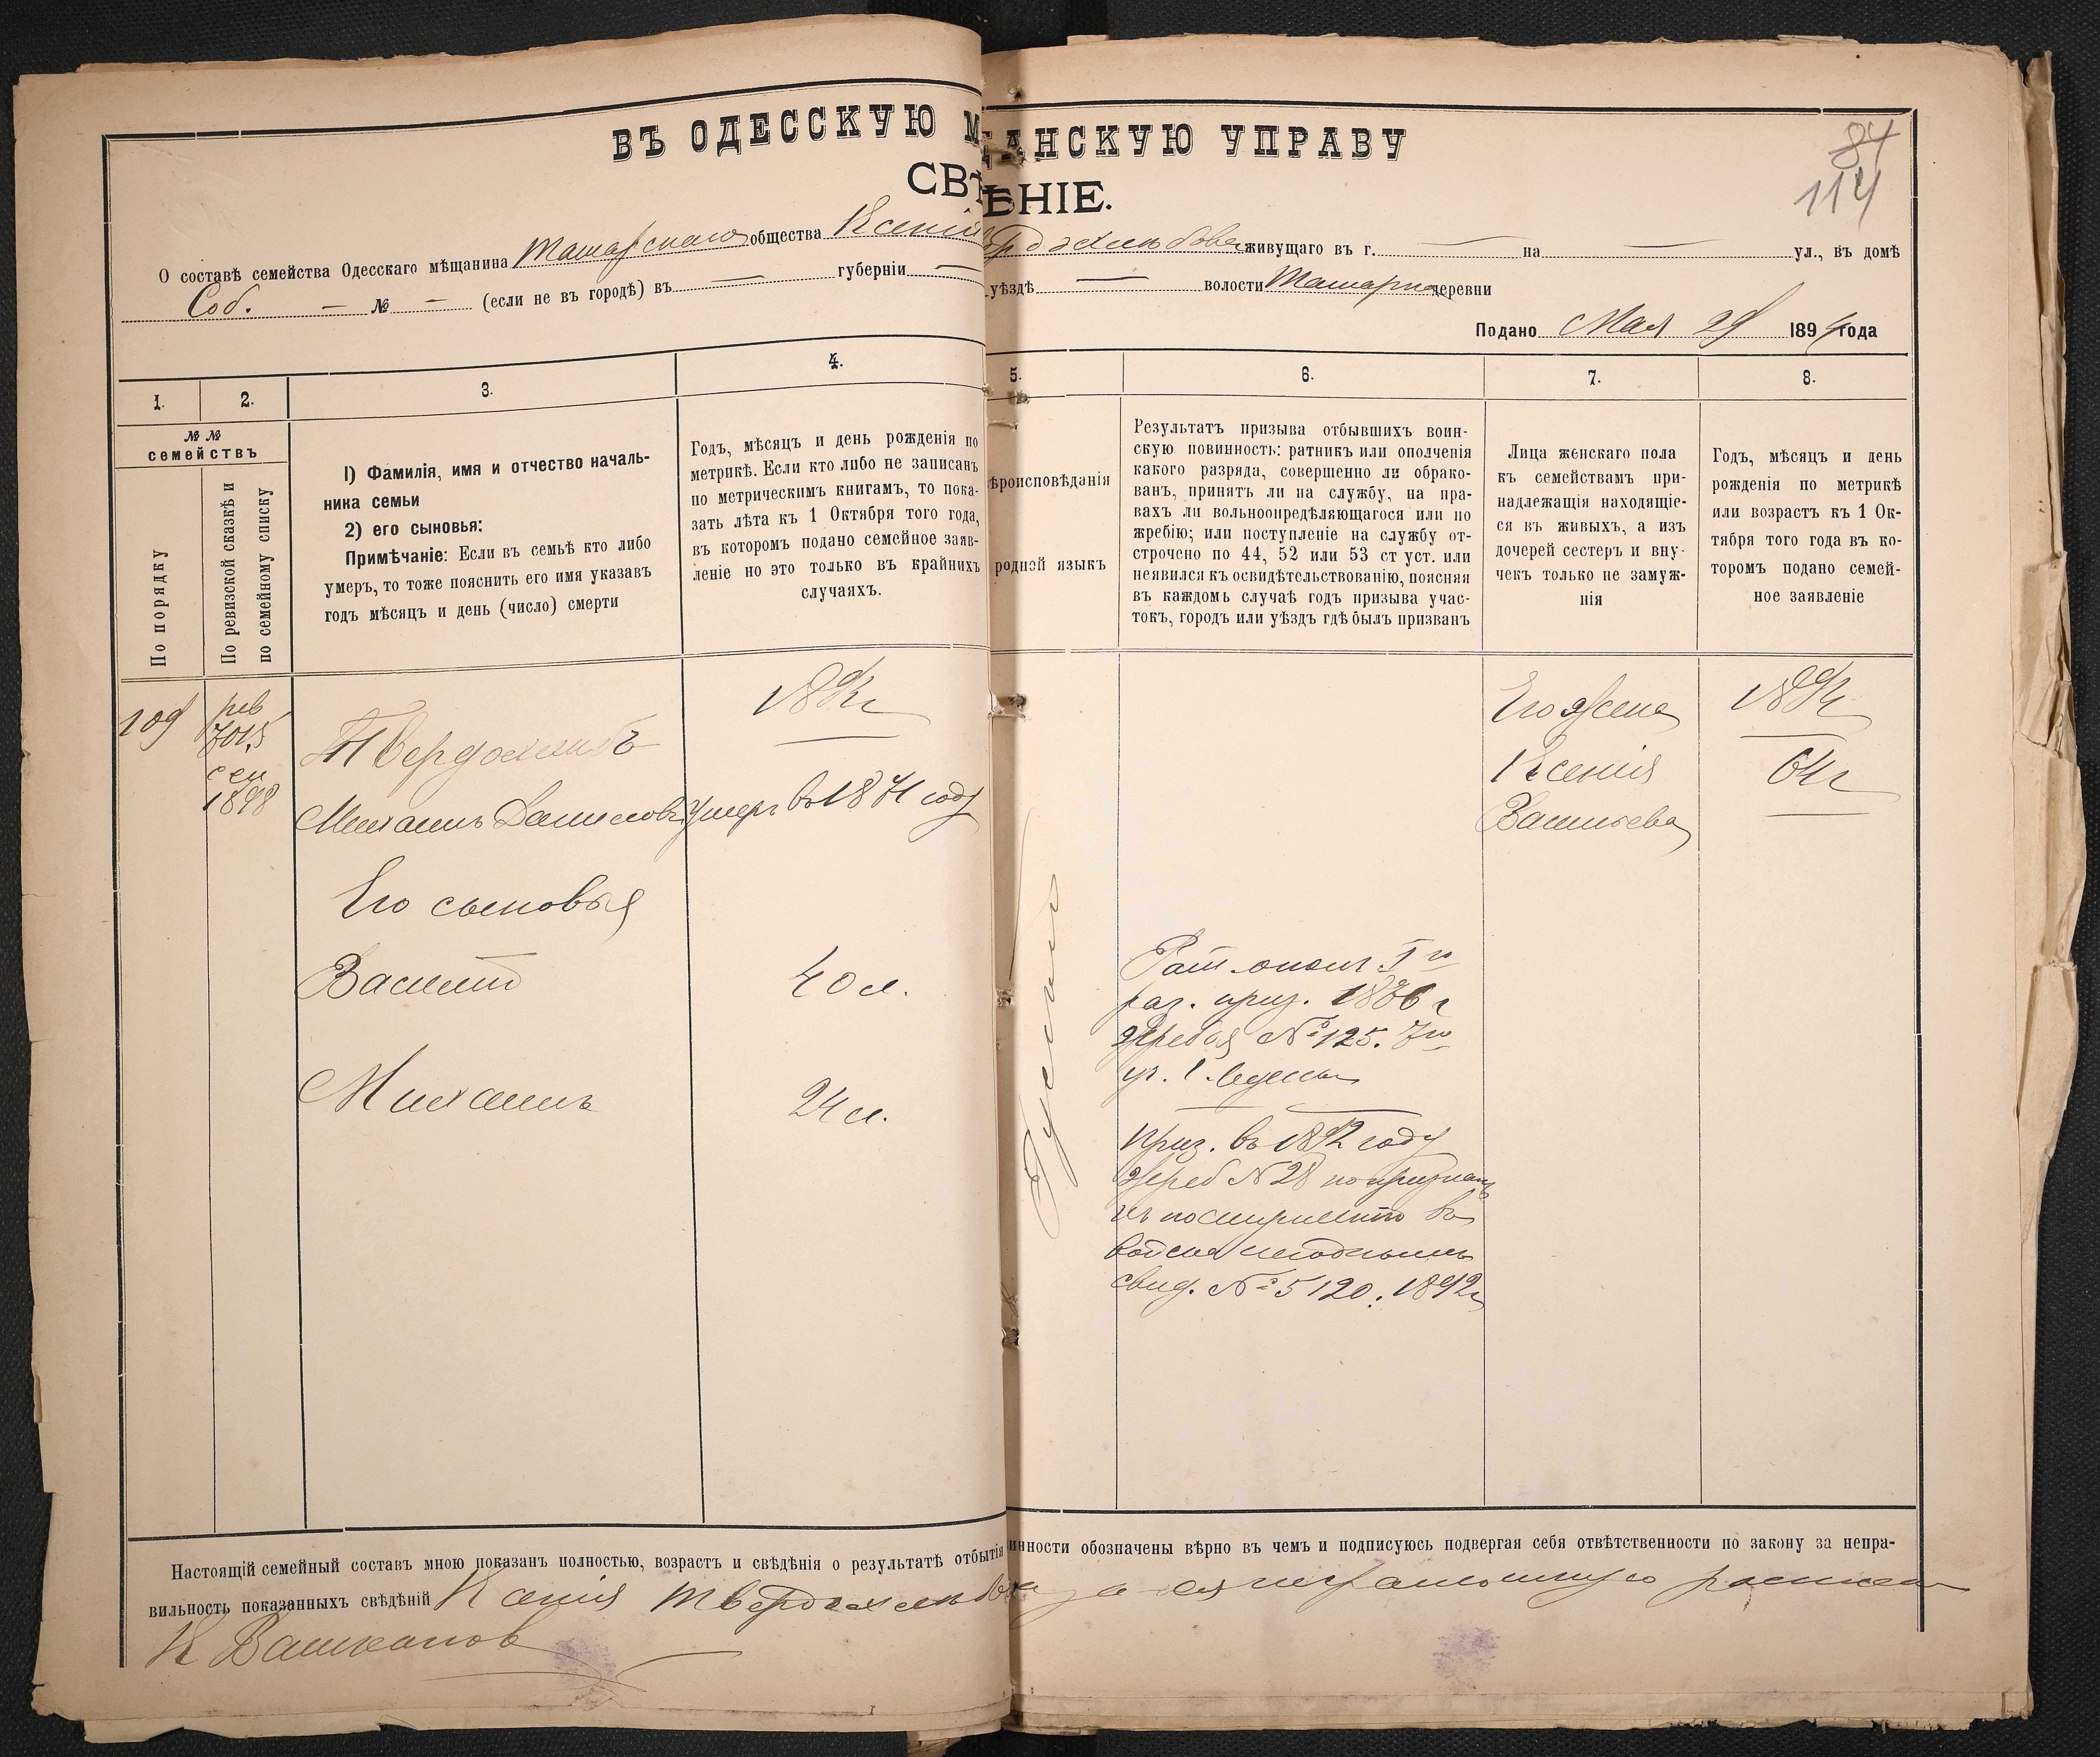 ВЪ ОДЕССКУЮ М ЩАНСКУЮ УПРАВУ
СВѢ ѢНІЕ.
84
114
О составѣ семейства Одесскаго мѣщанина Ташарскаго общества Ксенія Твердохлѣбова живущаго въ г. — на — ул., въ домѣ
Соб. — № — (если не въ городѣ) въ — губерніи — уѣздѣ — волости деревни
Подано Мая 29 1894 года
1. 2. 3. 4. 5. 6. 7. 8.
№ №
семействъ
По порядку
По ревизской сказкѣ и
по семейному списку
1) Фамилія, имя и отчество началь-
ника семьи
2) его сыновья:
Примѣчаніе: Если въ семьѣ кто либо
умеръ, то тоже пояснить его имя указавъ
годъ мѣсяцъ и день (число) смерти
Годъ, мѣсяцъ и день рожденія по
метрикѣ. Если кто либо не записанъ
по метрическимъ книгамъ, то пока-
зать лѣта къ 1 Октября того года,
въ которомъ подано семейное заяв-
леніе но это только въ крайнихъ
случаяхъ.
ѣроисповѣданія
родной языкъ
Результатъ призыва отбывшихъ воин-
скую повинность: ратникъ или ополченія
какого разряда, совершенно ли обрако-
ванъ, принятъ ли на службу, на пра-
вахъ ли вольноопредѣляющагося или по
жребію; или поступленіе на службу от-
строчено по 44, 52 или 53 ст уст. или
неявился къ освидѣтельствованію, поясняя
въ каждомъ случаѣ годъ призыва учас-
токъ, городъ или уѣздъ гдѣ былъ призванъ
Лица женскаго пола
къ семействамъ при-
надлежащія находящіе-
ся въ живыхъ, а изъ
дочерей сестеръ и вну-
чекъ только не замуж-
нія
Годъ, мѣсяцъ и день
рожденія по метрикѣ
или возрастъ къ 1 Ок-
тября того года въ ко-
торомъ подано семей-
ное заявленіе
109
рев
7015
сем
1898
Твердохлибъ
Михаилъ Даниловъ
Его сыновья
Василій
Михаилъ
189 г
Умеръ въ 1871 году
40 л.
24 л.
Рат. ополч. I го
раз. приз. 1886 г
жребія № 125. 7го
уч.
приз. въ 1892 году
Жреб № 28 но признанъ
къ поступленію въ
войска негоднымъ
свид. № 5120. 1892 г
Его жена
Ксенія
Васильева
189 г
64 г
Настоящій семейный составъ мною показанъ полностью, возрастъ и свѣдѣнія о результатѣ отбытія инности обозначены вѣрно въ чемъ и подписуюсь подвергая себя отвѣтственности по закону за непра-
вильность показанныхъ свѣдѣній Ксенія Твердохлѣбова за ея неграмотную
К